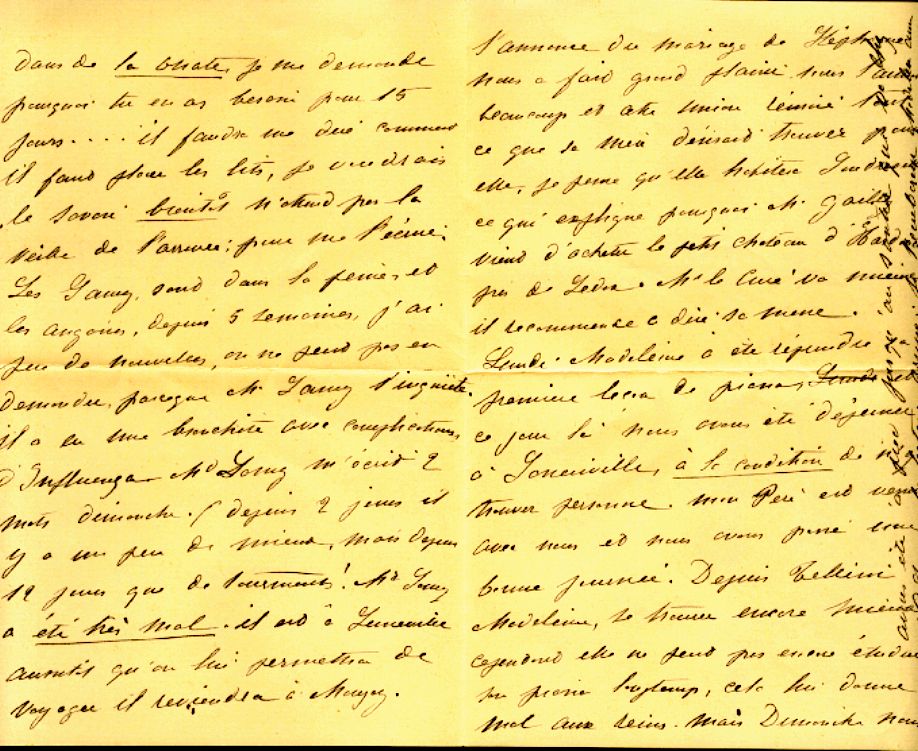 dans de la ouate, je me demande
pourquoi tu en as besoin pour 15
jours.... il faudra me dire comment
il faut placer les lits, je voudrais
le savoir bientôt n'attend pas la
veille de l'arrivée, pour me l'écrire.
Les Jamy, sont dans la peine, et
les angoisses, depuis 5 semaines, j'ai
peu de nouvelles, on ne peut pas en
demander, parceque Mr Jamy s'inquiète.
il a eu une bronchite avec complications,
d'Influenza Md Jamy m'écrit 2
mots dimanche. (depuis 2 jours il
y a un peu de mieux, mais depuis
12 jours que de tourments! Md Jamy
a été très mal. il est à Luneville
aussitôt qu'on lui permettra de
voyager il reviendra à
l'annonce du mariage de
nous a fait grand plaisir nous l'aimons
beaucoup et cette union réunit tout
ce que sa mère désirait trouver pour
elle, je pense qu'elle habitera
ce qui explique pourquoi Mr
vient d'acheter le petit chateau d'
près de Mr le Curé va mieux
il recommence à dire sa messe.
Lundi Madeleine a été reprendre sa
première leçon de piano,
ce jour là nous avons été déjeuner
à à la condition de n'y
trouver personne. mon Père est venu
avec nous et nous avons passé une
bonne journée. Depuis
Madeleine, se trouve encore mieux
cependant elle ne peut pas encore étudier
son piano longtemp, cela lui donne
mal aux reins. mais Dimanche nous